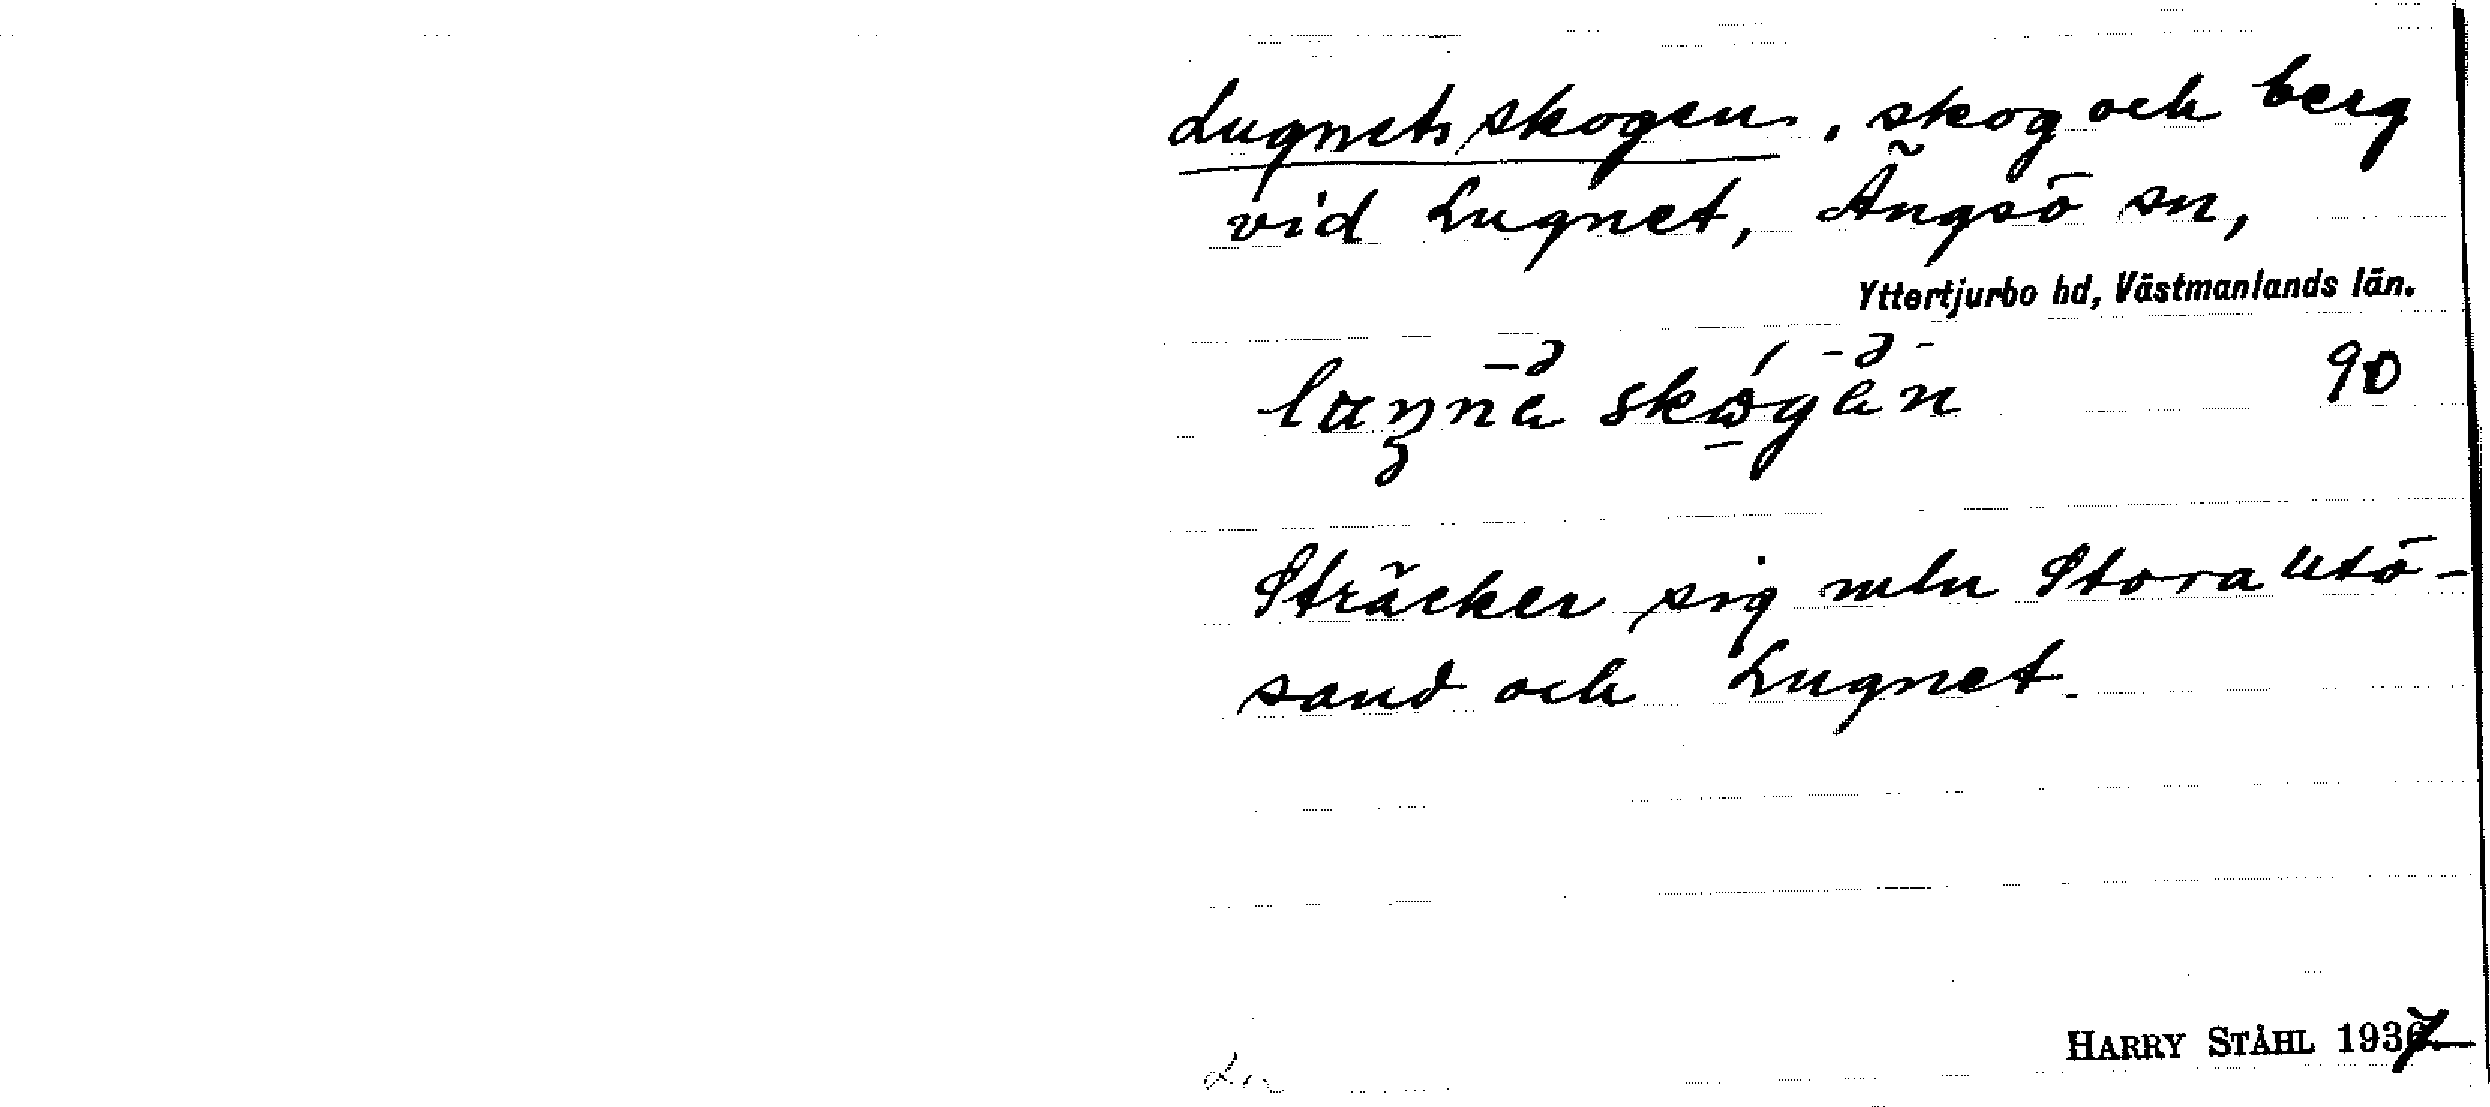 Lugnetsskogen, skog och berg
vid Lugnet, Ängsö sn,
Yttertjurbo hd, Västmanlands län.
90
Sträcker sig mln Stora Utö-
sand och Lugnet.
HARRY STÅHL 1937